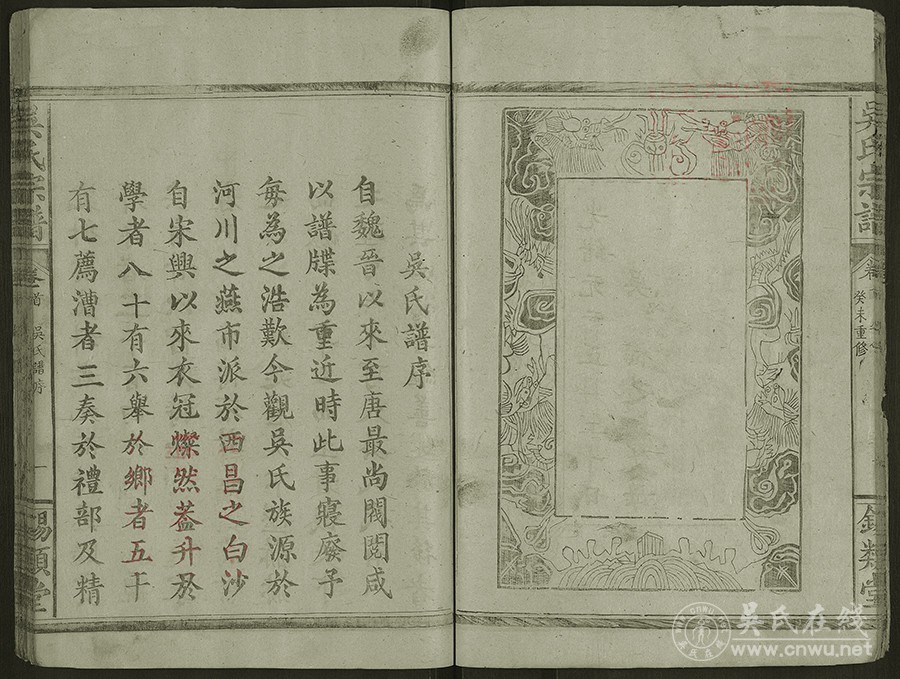 吳氏宗譜
癸未重修
錫類堂
吳氏譜序
自魏晉以來至唐最尚閥閱咸
以譜牒為重近時此事寢廢予
每為之浩歎今觀吳氏族源於
河川之燕市派於西昌之白沙
自宋興以來衣冠燦然蓋升於
學者八十有六舉於鄉者五十
有七薦漕者三奏於禮部及精
吳氏宗譜
卷首
吳氏譜序
一
錫類堂
吴氏在线
www.cnwu.net